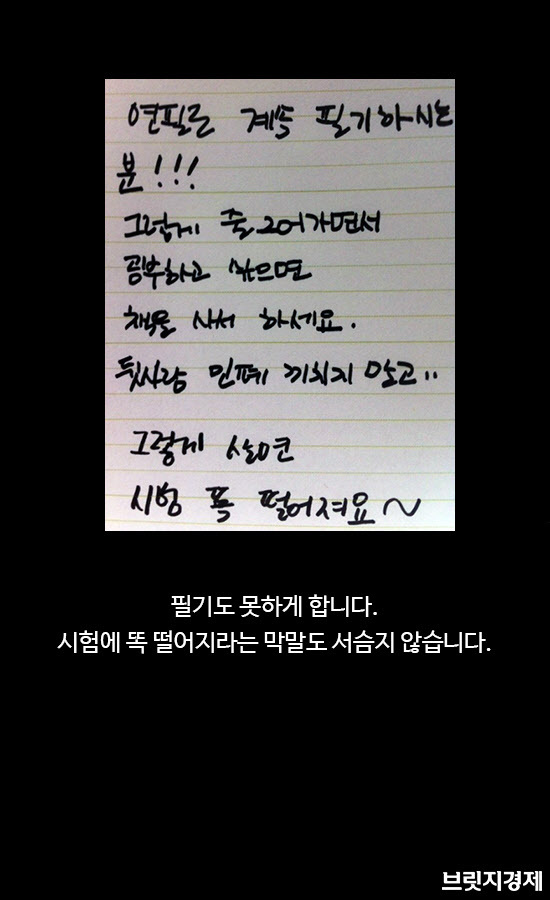 연필로 계속 필기하시는
분!!!
그렇게 줄 그어가면서
공부하고 싶으면
책을 사서 하세요.
뒷사람 민폐 끼치지 말고..
그렇게 살면
시험 똑 떨어져요~
필기도 못하게 합니다.
시험에 똑 떨어지라는 막말도 서슴지 않습니다.
브릿지경제